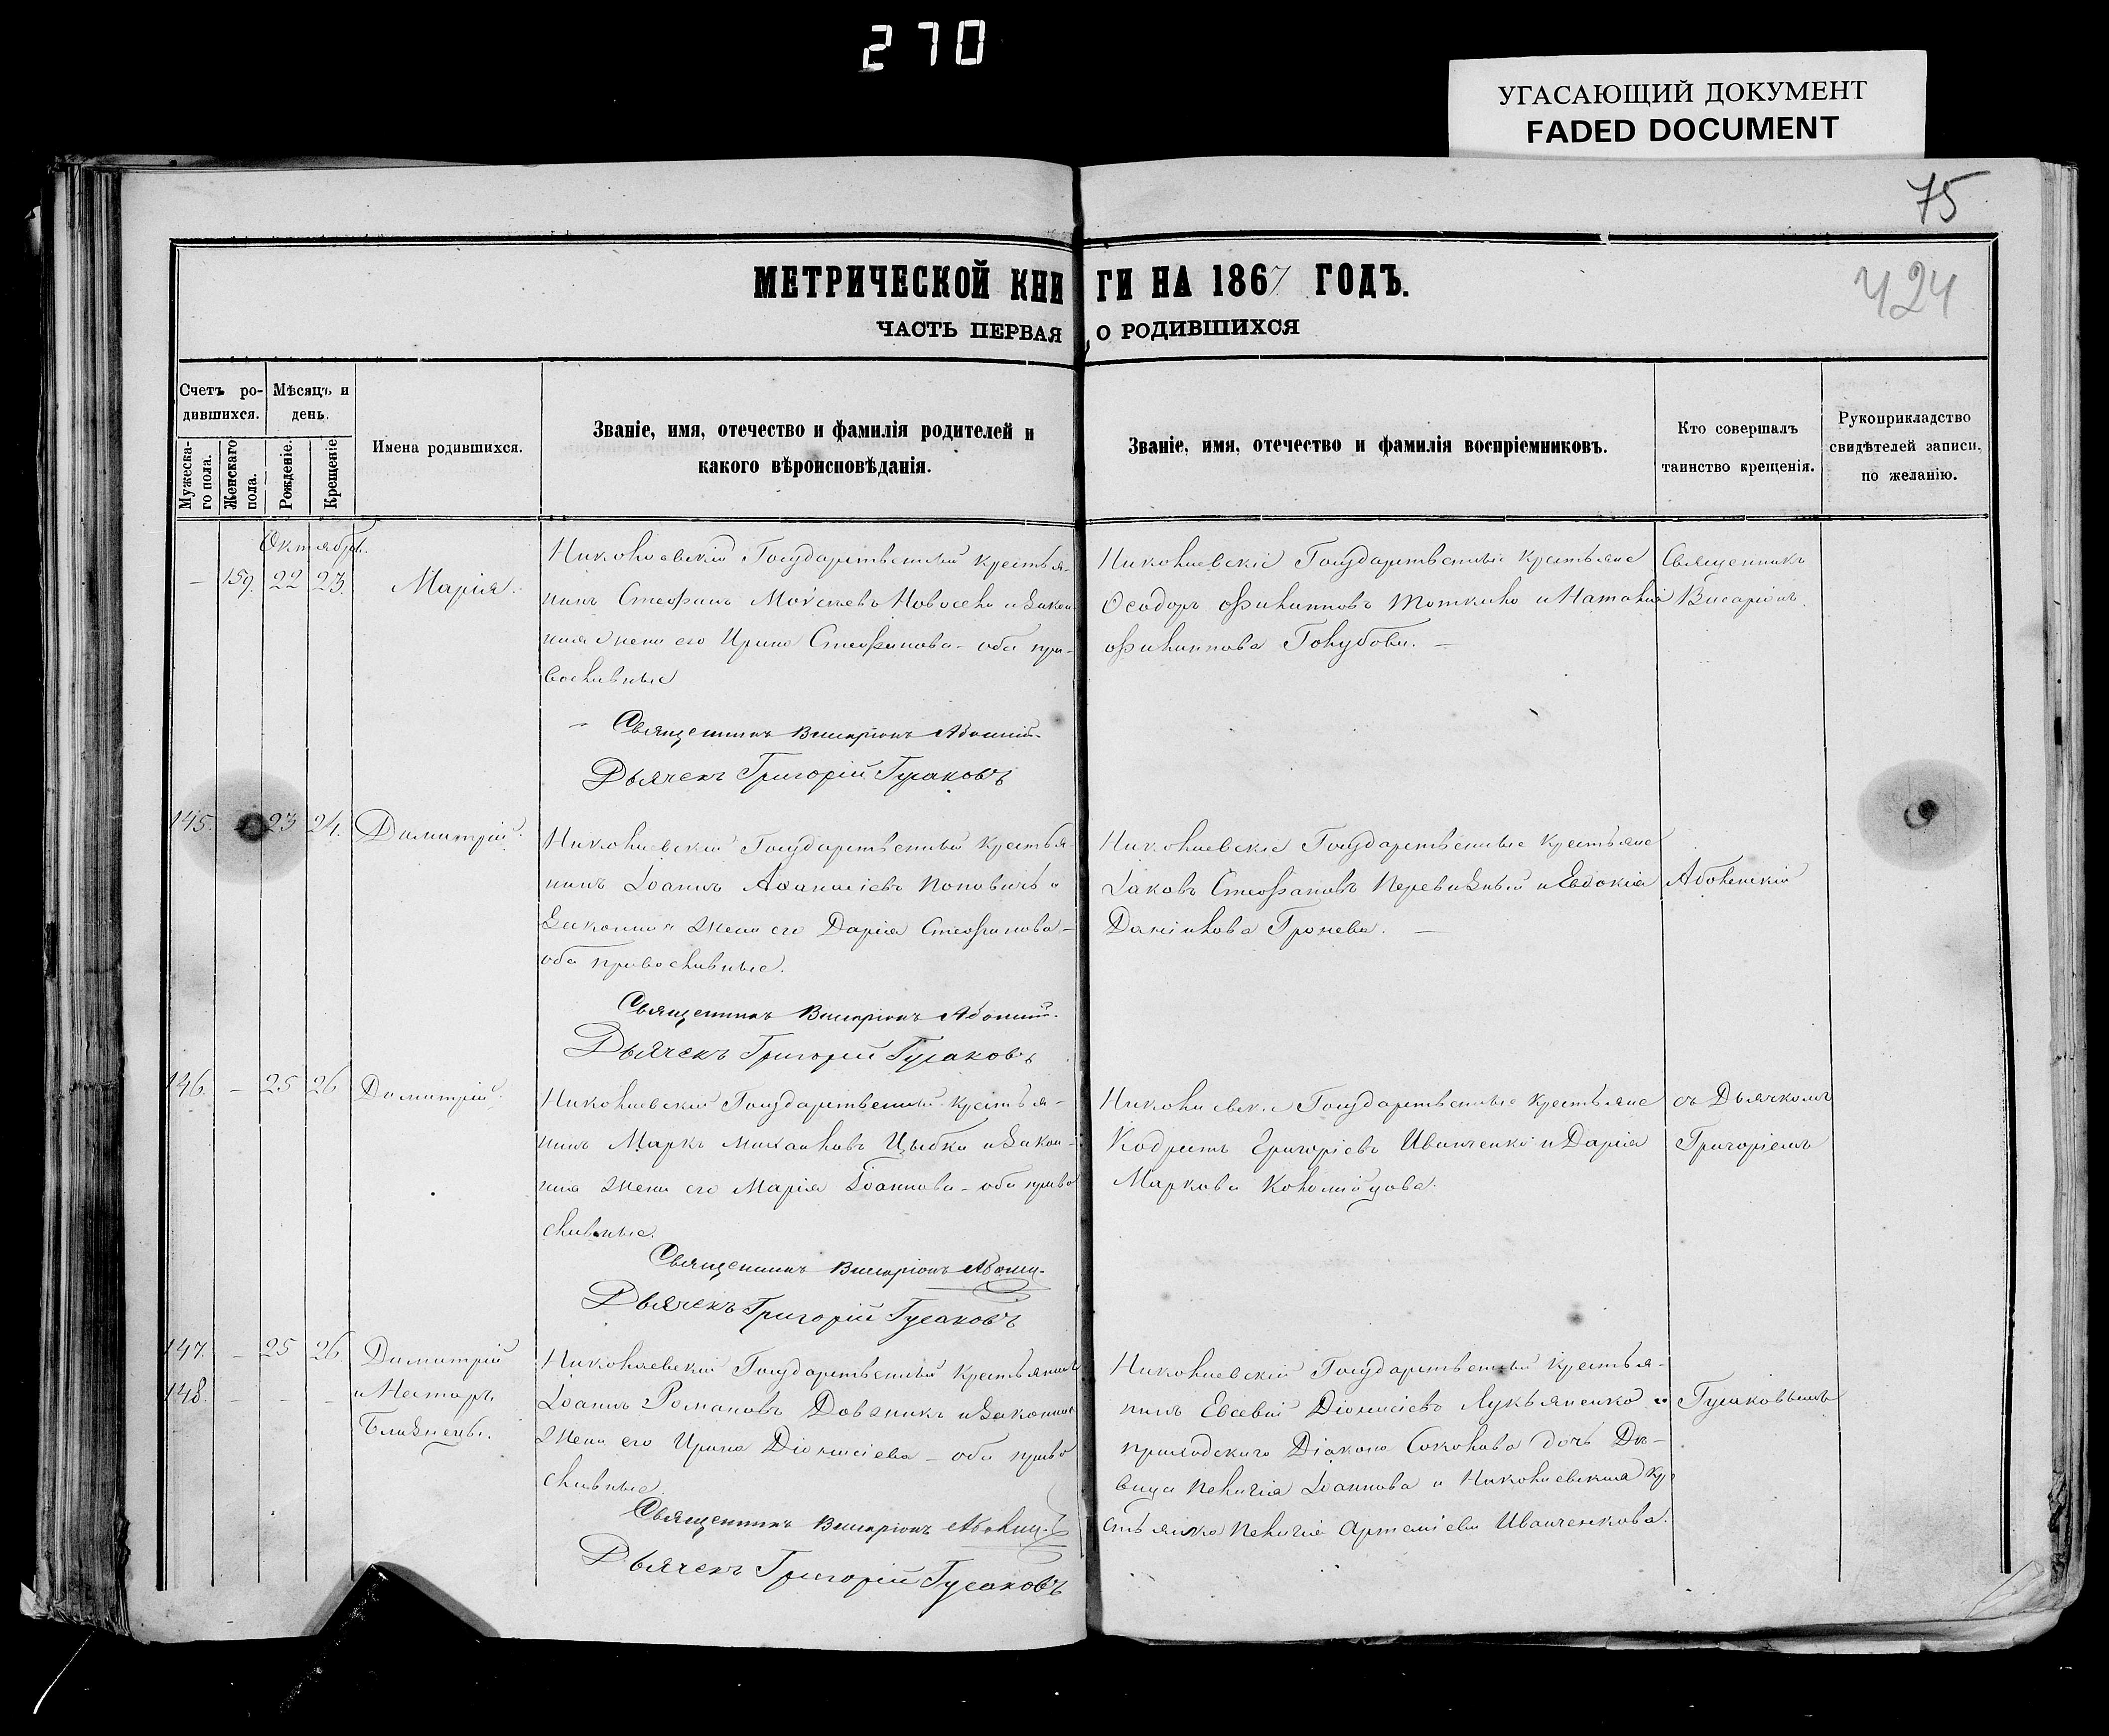 270
УГАСАЮЩИЙ ДОКУМЕНТ
FADED DOCUMENT
75
424
МЕТРИЧЕСКОЙ КНИГИ НА 1867 ГОДЪ.
ЧАСТЬ ПЕРВАЯ, О РОДИВШИХСЯ
Счетъ ро-
дившихся.
Мужеска-
го пола.
Женскаго
пола.
Мѣсяцъ и
день.
Рожденіе.
Крещеніе
Имена родившихся.
Званіе, имя, отечество и фамилія родителей и
какого вѣроисповѣданія.
Званіе, имя, отечество и фамилія воспріемниковъ.
Кто совершалъ
таинство крещенія.
Рукоприкладство
свидѣтелей записи,
по желанію.
Октябрь.
– 159. 22 23. Марія.
Николаевскій Государственный крестья-
нинъ Стефанъ Моѵсеевъ и закон-
ная жена его Ирина Стефанова – оба пра-
вославные
Священникъ Висаріонъ
Дьячекъ Григорій Гусаковъ
Николаевскіе Государственные крестьяне
Ѳеодоръ Филипповъ и Наталія
Филиппова Голубова. –
Священникъ
Висаріонъ
145. 23 24. Димитрій.
Николаевскій Государственный крестья-
нинъ Іоаннъ Аѳанасіевъ Поповичъ и
законная жена его Дарія Стефанова –
оба православные.
Священникъ Висаріонъ
Дьячекъ Григорій Гусаковъ
Николаевскіе Государственные крестьяне
Іаковъ Стефановъ и Евдокія
Даніилова
146. – 25 26 Димитрій.
Николаевскій Государственный крестья-
нинъ Маркъ Михаиловъ Цыбка и закон-
ная жена его Марія Іоаннова – оба право
славные.
Священникъ Висаріонъ
Дьячекъ Григорій Гусаковъ
Николаевскіе Государственные крестьяне
Кодратъ Григоріевъ Иванченко и Дарія
Маркова Коломійцова.
съ Дьячкомъ
Григоріемъ
147. – 25 26. Димитрій
148. – – – и Несторъ
близнецы.
Николаевскій Государственный крестьянинъ
Іоаннъ Романовъ и законная
жена его Ирина Діонисіева – оба право
славные.
Священникъ Висаріонъ
Дьячекъ Григорій Гусаковъ
Николаевскій Государственный крестья-
нинъ Евсевій Діонисіевъ Лукьяненко и
приходскаго Діакона Соколова дочь Дѣ-
вица Пелагія Іоаннова и Николаевская кре
стьянка Пелагія Артеміева Иванченкова.
Гусаковымъ